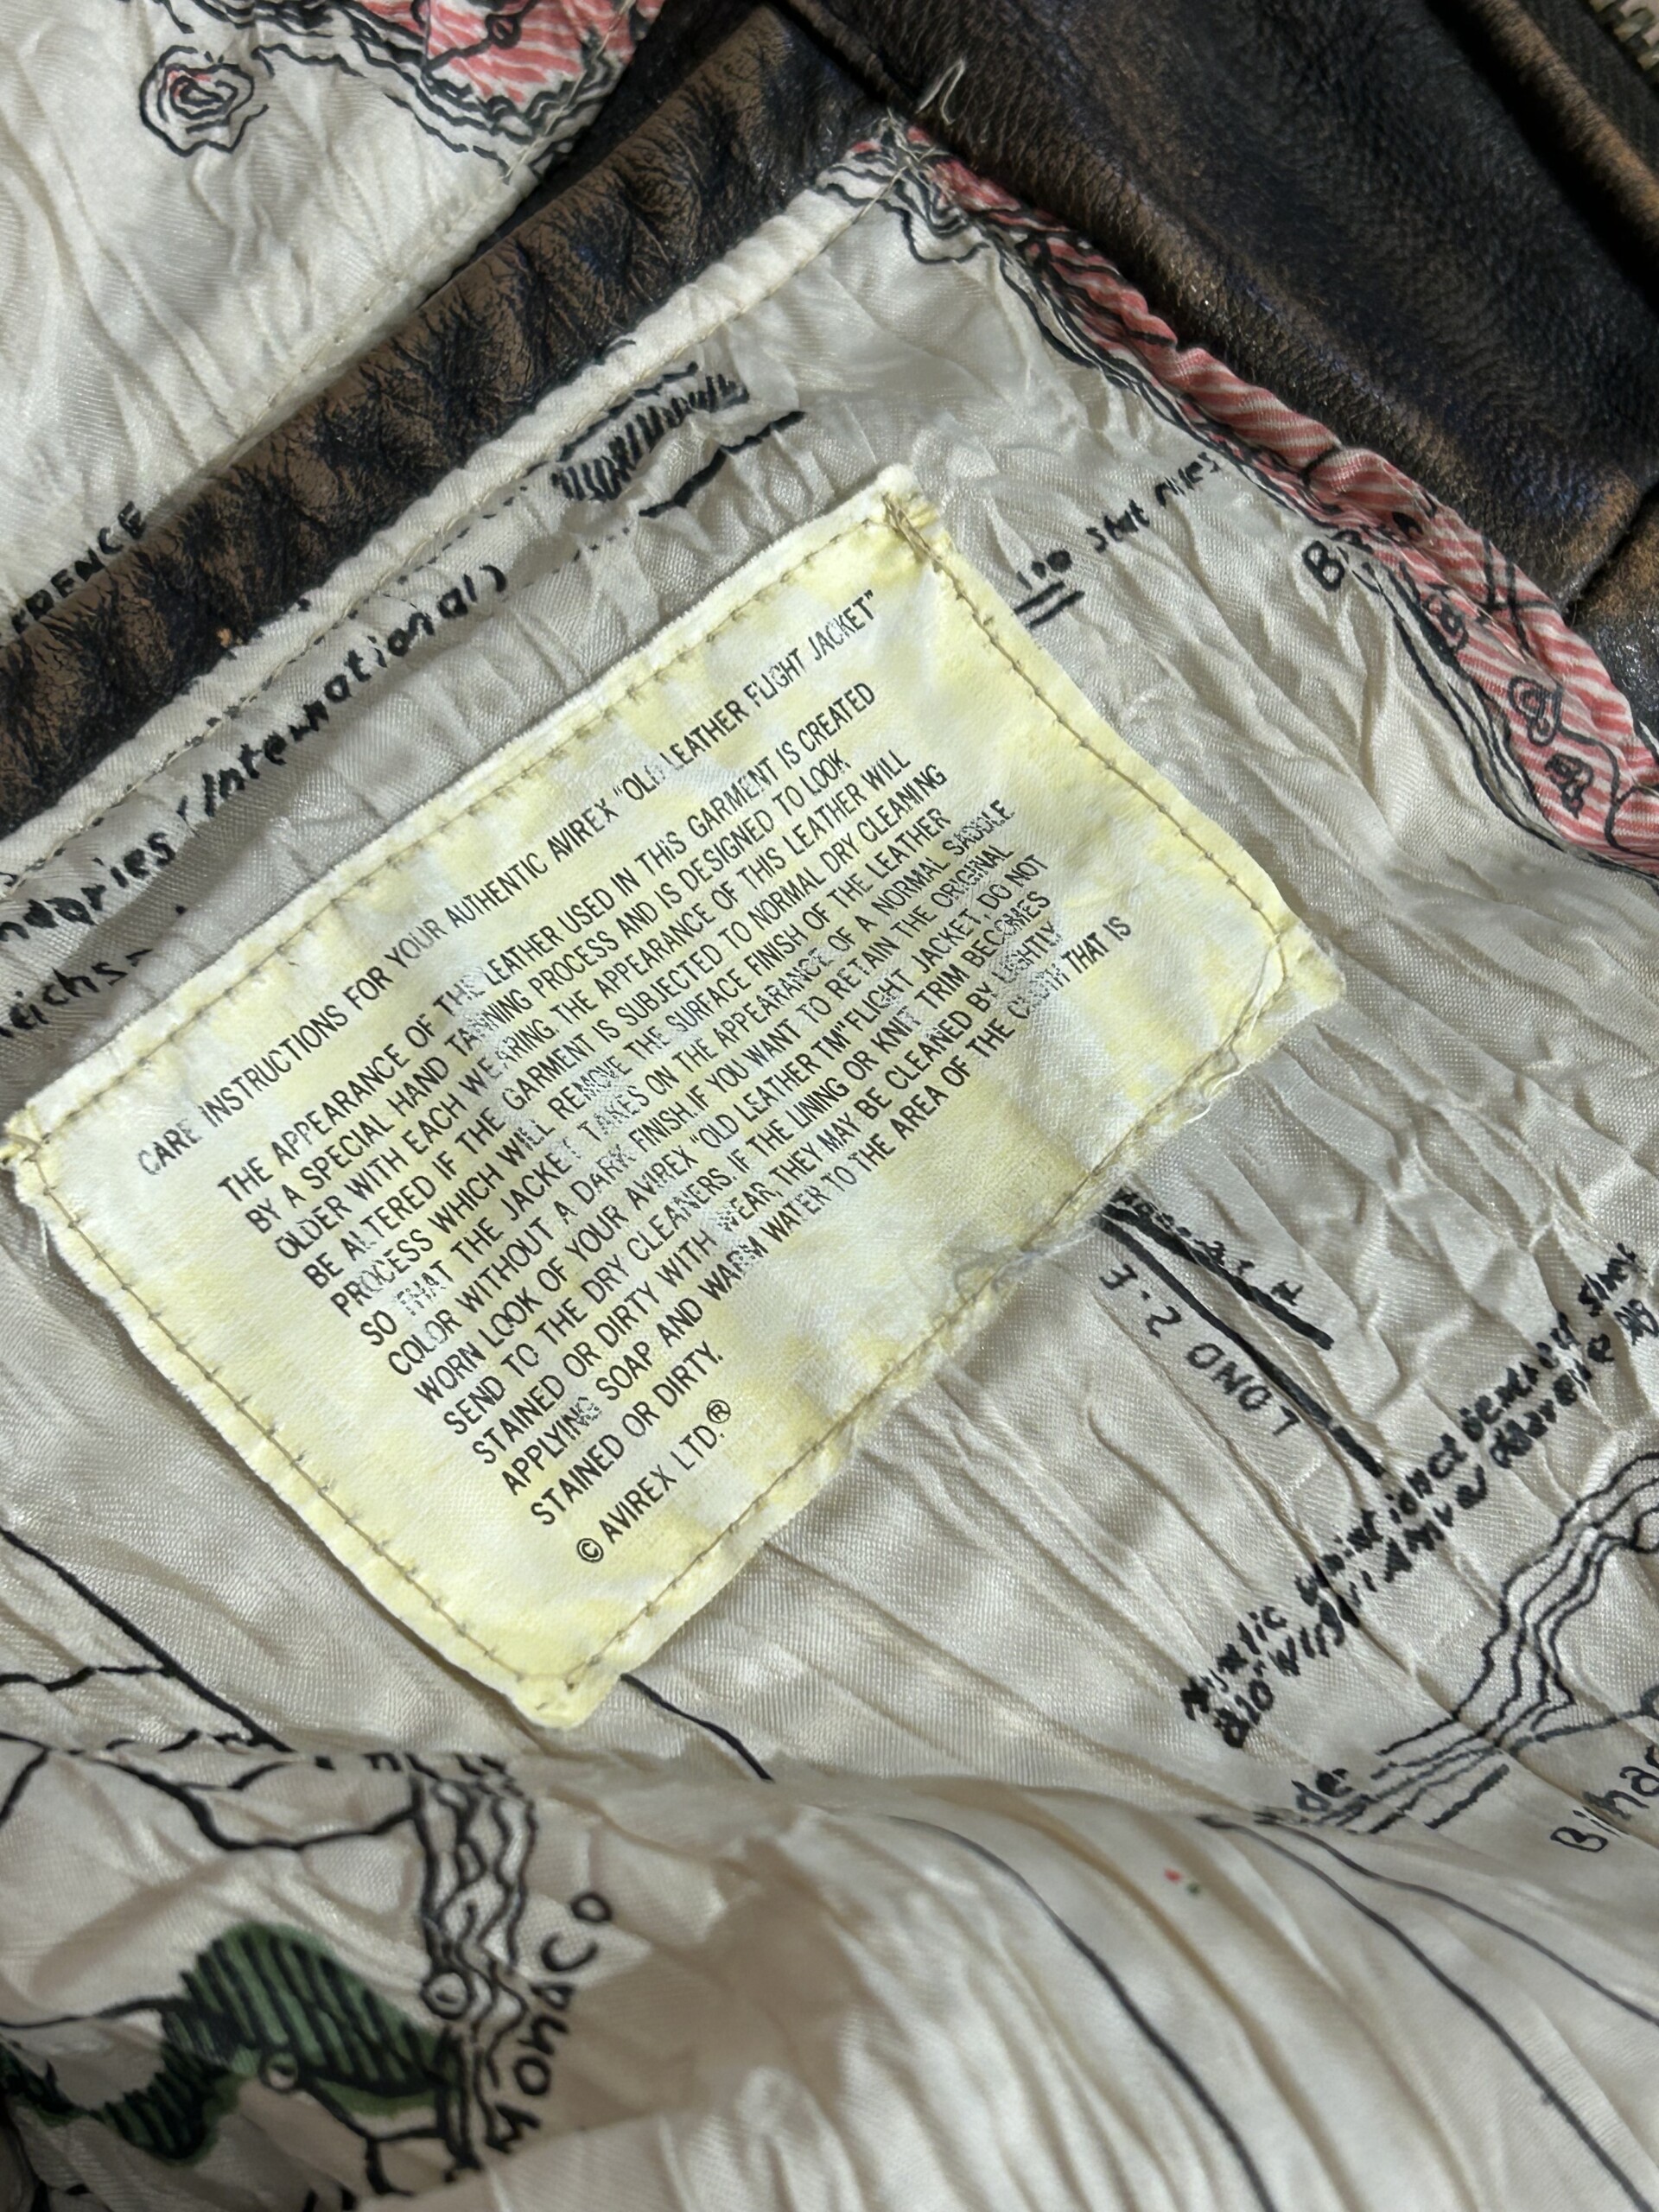 ERENCE
ndaries (International)
eichs-
100 Stat Miles
CARE INSTRUCTIONS FOR YOUR AUTHENTIC AVIREX "OLD LEATHER FLIGHT JACKET"
THE APPEARANCE OF THE LEATHER USED IN THIS GARMENT IS CREATED
BY A SPECIAL HAND TANNING PROCESS AND IS DESIGNED TO LOOK
OLDER WITH EACH WEARING. THE APPEARANCE OF THIS LEATHER WILL
BE ALTERED IF THE GARMENT IS SUBJECTED TO NORMAL DRY CLEANING
PROCESS WHICH WILL REMOVE THE SURFACE FINISH OF THE LEATHER
SO THAT THE JACKET TAKES ON THE APPEARANCE OF A NORMAL SADDLE
COLOR WITHOUT A DARK FINISH.IF YOU WANT TO RETAIN THE ORIGINAL
WORN LOOK OF YOUR AVIREX "OLD LEATHER TM" FLIGHT JACKET, DO NOT
SEND TO THE DRY CLEANERS. IF THE LINING OR KNIT TRIM BECOMES
STAINED OR DIRTY WITH WEAR, THEY MAY BE CLEANED BY LIGHTLY
APPLYING SOAP AND WARM WATER TO THE AREA OF THE CLOTH THAT IS
STAINED OR DIRTY.
© AVIREX LTD.®
LONG 2·E
Monaco